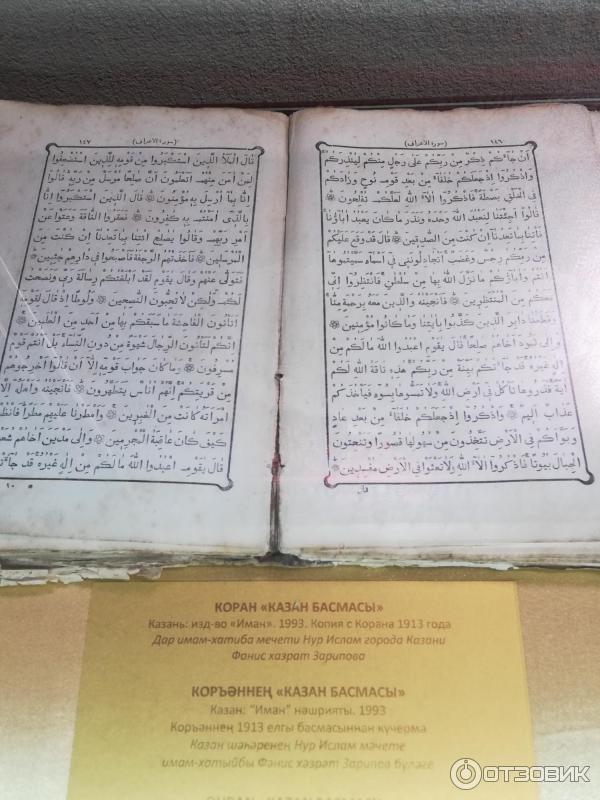 ١٤٦ (سورة الاعراف)
أَنْ جَاءَكُمْ ذِكْرٌ مِنْ رَبِّكُمْ عَلَى رَجُلٍ مِنْكُمْ لِيُنْذِرَكُمْ
وَاذْكُرُوا اِذْ جَعَلَكُمْ خُلَفَاءَ مِنْ بَعْدِ قَوْمِ نُوحٍ وَزَادَكُمْ
فِي الْخَلْقِ بَصْطَةً فَاذْكُرُوا اٰلَاءَ اللّٰهِ لَعَلَّكُمْ تُفْلِحُونَ ۞
قَالُوا اَجِئْتَنَا لِنَعْبُدَ اللّٰهَ وَحْدَهُ وَنَذَرَ مَا كَانَ يَعْبُدُ اٰبَاؤُنَا
فَأْتِنَا بِمَا تَعِدُنَا اِنْ كُنْتَ مِنَ الصّٰدِقِينَ ۞ قَالَ قَدْ وَقَعَ عَلَيْكُمْ
مِنْ رَبِّكُمْ رِجْسٌ وَغَضَبٌ اَتُجَادِلُونَنِي فِي اَسْمَاءٍ سَمَّيْتُمُوهَا
اَنْتُمْ وَاٰبَاؤُكُمْ مَا نَزَّلَ اللّٰهُ بِهَا مِنْ سُلْطٰنٍ فَانْتَظِرُوا اِنِّي
مَعَكُمْ مِنَ الْمُنْتَظِرِينَ ۞ فَاَنْجَيْنٰهُ وَالَّذِينَ مَعَهُ بِرَحْمَةٍ مِنَّا
وَقَطَعْنَا دَابِرَ الَّذِينَ كَذَّبُوا بِاٰيٰتِنَا وَمَا كَانُوا مُؤْمِنِينَ ۞
وَاِلَى ثَمُودَ اَخَاهُمْ صٰلِحًا قَالَ يٰقَوْمِ اعْبُدُوا اللّٰهَ مَا لَكُمْ مِنْ
اِلٰهٍ غَيْرُهُ قَدْ جَاءَتْكُمْ بَيِّنَةٌ مِنْ رَبِّكُمْ هٰذِهِ نَاقَةُ اللّٰهِ لَكُمْ
اٰيَةً فَذَرُوهَا تَأْكُلْ فِي اَرْضِ اللّٰهِ وَلَا تَمَسُّوهَا بِسُوءٍ فَيَأْخُذَكُمْ
عَذَابٌ اَلِيمٌ ۞ وَاذْكُرُوا اِذْ جَعَلَكُمْ خُلَفَاءَ مِنْ بَعْدِ عَادٍ
وَبَوَّاَكُمْ فِي الْاَرْضِ تَتَّخِذُونَ مِنْ سُهُولِهَا قُصُورًا وَتَنْحِتُونَ
الْجِبَالَ بُيُوتًا فَاذْكُرُوا اٰلَاءَ اللّٰهِ وَلَا تَعْثَوْا فِي الْاَرْضِ مُفْسِدِينَ ۞
قال
(سورة الاعراف) ١٤٧
قَالَ الْمَلَاُ الَّذِينَ اسْتَكْبَرُوا مِنْ قَوْمِهِ لِلَّذِينَ اسْتُضْعِفُوا
لِمَنْ اٰمَنَ مِنْهُمْ اَتَعْلَمُونَ اَنَّ صٰلِحًا مُرْسَلٌ مِنْ رَبِّهِ قَالُوا
اِنَّا بِمَا اُرْسِلَ بِهِ مُؤْمِنُونَ ۞ قَالَ الَّذِينَ اسْتَكْبَرُوا اِنَّا
بِالَّذِي اٰمَنْتُمْ بِهِ كٰفِرُونَ ۞ فَعَقَرُوا النَّاقَةَ وَعَتَوْا عَنْ
اَمْرِ رَبِّهِمْ وَقَالُوا يٰصٰلِحُ ائْتِنَا بِمَا تَعِدُنَا اِنْ كُنْتَ مِنَ
الْمُرْسَلِينَ ۞ فَاَخَذَتْهُمُ الرَّجْفَةُ فَاَصْبَحُوا فِي دَارِهِمْ جٰثِمِينَ ۞
فَتَوَلَّى عَنْهُمْ وَقَالَ يٰقَوْمِ لَقَدْ اَبْلَغْتُكُمْ رِسَالَةَ رَبِّي وَنَصَحْتُ
لَكُمْ وَلٰكِنْ لَا تُحِبُّونَ النّٰصِحِينَ ۞ وَلُوطًا اِذْ قَالَ لِقَوْمِهِ
اَتَأْتُونَ الْفَاحِشَةَ مَا سَبَقَكُمْ بِهَا مِنْ اَحَدٍ مِنَ الْعٰلَمِينَ ۞
اِنَّكُمْ لَتَأْتُونَ الرِّجَالَ شَهْوَةً مِنْ دُونِ النِّسَاءِ بَلْ اَنْتُمْ قَوْمٌ
مُسْرِفُونَ ۞ وَمَا كَانَ جَوَابَ قَوْمِهِ اِلَّا اَنْ قَالُوا اَخْرِجُوهُمْ
مِنْ قَرْيَتِكُمْ اِنَّهُمْ اُنَاسٌ يَتَطَهَّرُونَ ۞ فَاَنْجَيْنٰهُ وَاَهْلَهُ اِلَّا
امْرَاَتَهُ كَانَتْ مِنَ الْغٰبِرِينَ ۞ وَاَمْطَرْنَا عَلَيْهِمْ مَطَرًا فَانْظُرْ
كَيْفَ كَانَ عَاقِبَةُ الْمُجْرِمِينَ ۞ وَاِلَى مَدْيَنَ اَخَاهُمْ
قَالَ يٰقَوْمِ اعْبُدُوا اللّٰهَ مَا لَكُمْ مِنْ اِلٰهٍ غَيْرُهُ قَدْ
١٠ *
КОРАН «КАЗАН БАСМАСЫ»
Казань: изд-во «Иман». 1993. Копия с Корана 1913 года
Дар имам-хатиба мечети Нур Ислам города Казани
Фанис хазрат Зарипова
КОРЪӘННЕҢ «КАЗАН БАСМАСЫ»
Казан: "Иман" нәшрияты. 1993
Коръәннең 1913 елгы басмасыннан күчерма
Казан шәһәренең Нур Ислам мәчете
имам-хатыйбы Фәнис хәзрәт Зарипов бүләге
ОТЗОВИК